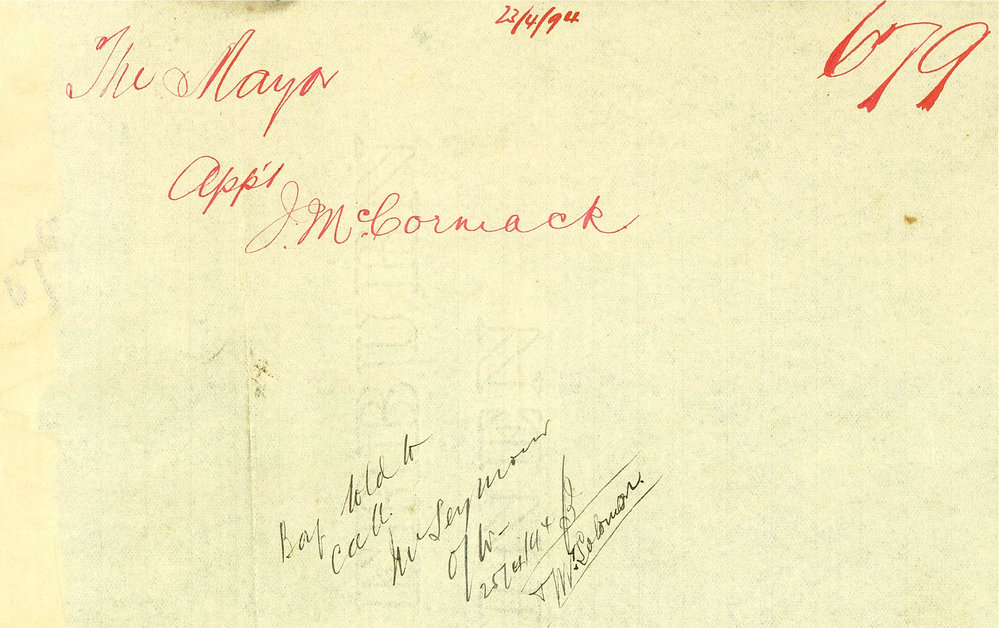 23/4/94
679
The Mayor
App't
J. McCormack
Boy told to
call.
Mr Seymour
of W-
25/4/94
& Mr Solomon.